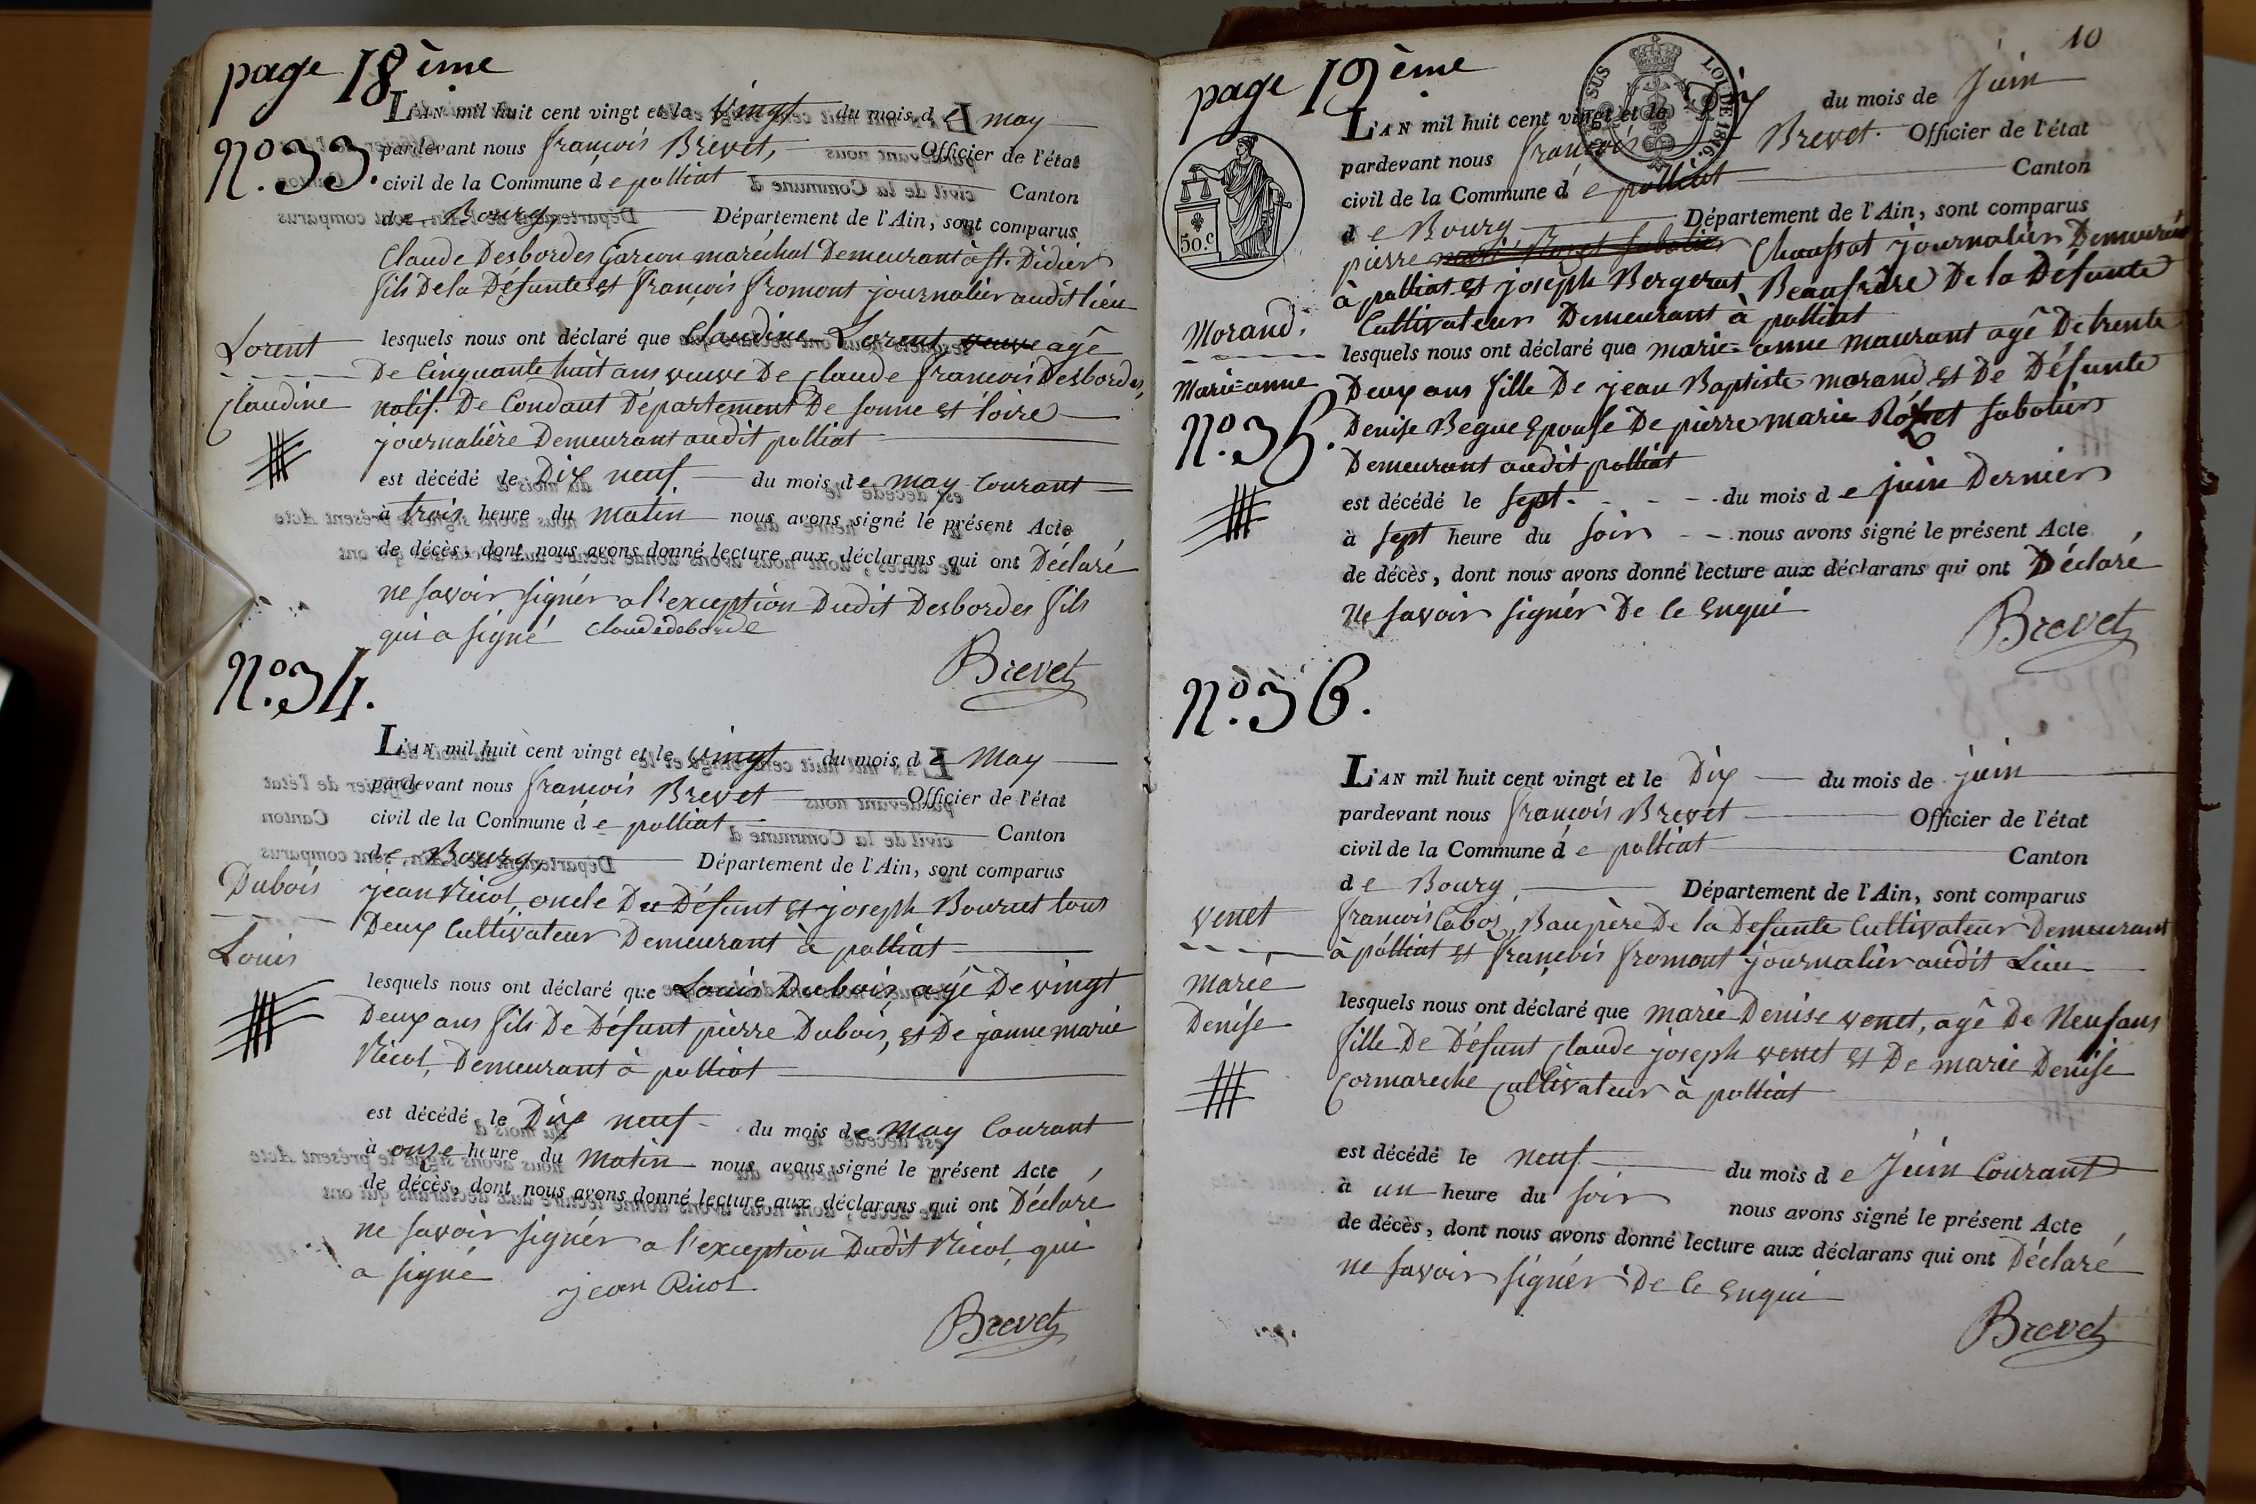 page 18ème
L'AN mil huit cent vingt et le vingt du mois de may
N.º 33. pardevant nous françois Brevet, Officier de l'état
civil de la Commune de polliat Canton
de Bourg Département de l'Ain, sont comparus
Claude Desbordes Garcon maréchal Demeurant à st. Didier
fils De la Défunte et françois fromont journalier audit lieu
Lorent
lesquels nous ont déclaré que Claudine Lorent, veuve agê
De Cinquante huit ans veuve De Claude francois Desbordes,
Claudine
natif. De Condant Département De sonne et loire
journalière Demeurant audit polliat
est décédé le Dix neuf du mois de may Courant
à trois heure du matin nous avons signé le présent Acte
de décès, dont nous avons donné lecture aux déclarans qui ont Déclaré
ne savoir signér a l'exception Dudit Desbordes fils
qui a signé claudedeborde
Brevet
N.º 34.
L'AN mil huit cent vingt et le vingt du mois de May
pardevant nous françois Brevet Officier de l'état
civil de la Commune de polliat Canton
de Bourg Département de l'Ain, sont comparus
Dubois
jean Nicol, oncle Du Défunt et joseph Bourut tous
Deux Cultivateur Demeurant à polliat
Louis
lesquels nous ont déclaré que Louis Dubois agê De vingt
Deux ans fils De Défunt pierre Dubois, et De janne marie
Nicol, Demeurant à polliat
est décédé le Dix neuf du mois de May Courant
à onze heure du Matin nous avons signé le présent Acte
de décès, dont nous avons donné lecture aux déclarans qui ont Déclaré
ne savoir signér a l'exception Dudit Nicol, qui
a signé jean Nicol
Brevet
10
page 19ème
SUS LOI DE 1816.
L'AN mil huit cent vingt et le Dix du mois de Juin
pardevant nous françois Brevet. Officier de l'état
civil de la Commune de polliat Canton
50.c
de Bourg Département de l'Ain, sont comparus
pierre Chaussat journalier Demeurant
à polliat et joseph Bergerat, Beaufrère De la Défunte
Morand.
Cultivateur Demeurant à polliat
lesquels nous ont déclaré que marie=anne maurant agê De trente
Marie=anne
Deux ans fille De jean Baptiste morand et De Défunte
N.º 35.
Denise Begue Epouse De pierre marie sabotier
Demeurant audit polliat
est décédé le sept. du mois de juin Dernier
à sept heure du soir nous avons signé le présent Acte
de décès, dont nous avons donné lecture aux déclarans qui ont Déclaré
ne savoir signér De ce Enqui
Brevet
N.º 36.
L'AN mil huit cent vingt et le Dix du mois de juin
pardevant nous françois Brevet Officier de l'état
civil de la Commune de polliat Canton
de Bourg Département de l'Ain, sont comparus
venet
francois Caboz, Baupère De la Defunte Cultivateur Demeurant
à polliat et françois fromont journalier audit Lieu
marie
lesquels nous ont déclaré que marie Denise venet, agê De Neuf ans
Denise
fille De Défunt Claude joseph venet et De marie Denise
Cormareche Cultivateur à polliat
est décédé le neuf du mois de Juin Courant
à un heure du soir nous avons signé le présent Acte
de décès, dont nous avons donné lecture aux déclarans qui ont Déclaré
ne savoir signér De ce Enqui
Brevet